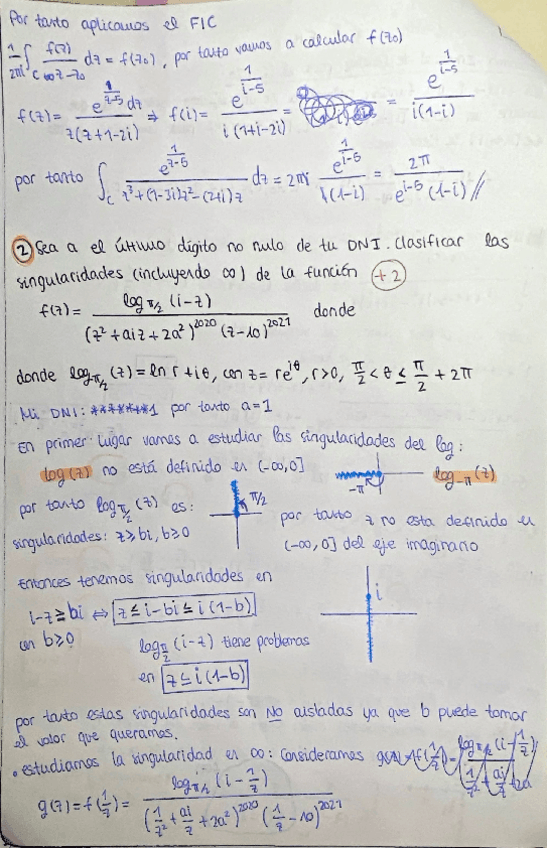 Por tanto aplicamos el FIC
1/2πi ∫_C f(z)/(z-z0) dz = f(z0), por tanto vamos a calcular f(z0)
f(z) = e^(1/(z-5)) dz / z(z+1-2i) ⇒ f(i) = e^(1/(i-5)) / i(1+i-2i) = = e^(1/(i-5)) / i(1-i)
por tanto ∫_C e^(1/(z-5)) / (z³+(1-3i)z²-(2+i)z) dz = 2πi e^(1/(i-5)) / i(1-i) = 2π / e^(i-5) (1-i) //
② Sea a el último dígito no nulo de tu DNI. Clasificar las
singularidades (incluyendo ∞) de la función +2
f(z) = log_π/2 (i-z) / (z²+aiz+2a²)^2020 (z-10)^2021 donde
donde log_π/2 (z) = ln r + iθ, con z = re^iθ, r>0, π/2 < θ ≤ π/2 + 2π
Mi DNI: *******1 por tanto a=1
En primer lugar vamos a estudiar las singularidades del log:
log(z) no está definido en (-∞,0] -π log_-π (z)
por tanto log_π/2 (z) es: π/2
singularidades: z ≥ bi, b≥0
por tanto z no esta definido en
(-∞,0] del eje imaginario
Entonces tenemos singularidades en
i-z ≥ bi ⇔ z ≤ i-bi ≤ i(1-b) i
con b≥0
log_π/2 (i-z) tiene problemas
en z ≤ i(1-b)
por tanto estas singularidades son NO aisladas ya que b puede tomar
el valor que queramos.
• estudiamos la singularidad en ∞: Consideramos
g(z) = f(1/z) = log_π/2 (i - 1/z) / (1/z² + ai/z + 2a²)^2020 (1/z - 10)^2021